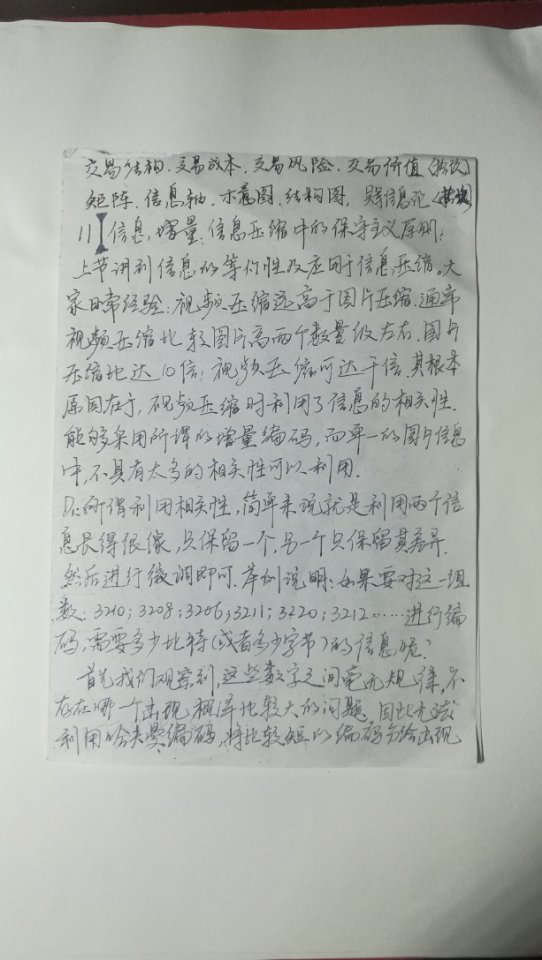 交易结构、交易成本、交易风险、交易价值
矩阵、信息轴、示意图、结构图、
11 信息增量:信息压缩中的保守主义原则:
上节讲到信息的等价性及应用于信息压缩。大
家日常经验:视频压缩远高于图片压缩.通常
视频压缩比较图片高两个数量级左右.图片
压缩比达10倍;视频压缩可达千倍.其根本
原因在于,视频压缩时利用了信息的相关性.
能够采用所谓的增量编码,而单一的图片信息
中,不具有太多的相关性可以利用.
D:所谓利用相关性,简单来说就是利用两个信
息长得很像,只保留一个,另一个只保留其差异.
然后进行微调即可.举例说明:如果要对这一组
数:3210;3208;3206;3211;3220;3212……进行编
码,需要多少比特(或者多少字节)的信息呢?
首先我们观察到,这些数字之间毫无规律,不
存在哪一个出现概率比较大的问题.因此无法
利用哈夫曼编码,将比较短的编码分给出现